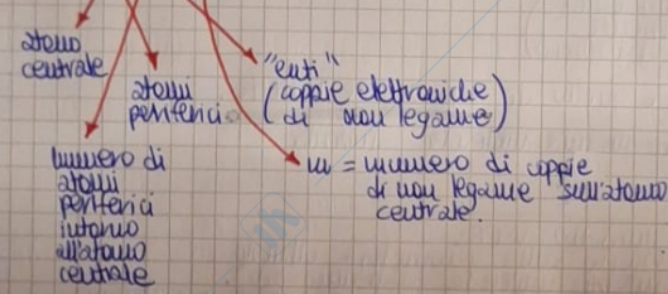 atomo
centrale
atomi
periferici
"enti"
(coppie elettroniche
di non legame)
numero di
atomi
periferici
intorno
all'atomo
centrale
m = numero di coppie
di non legame sull'atomo
centrale.